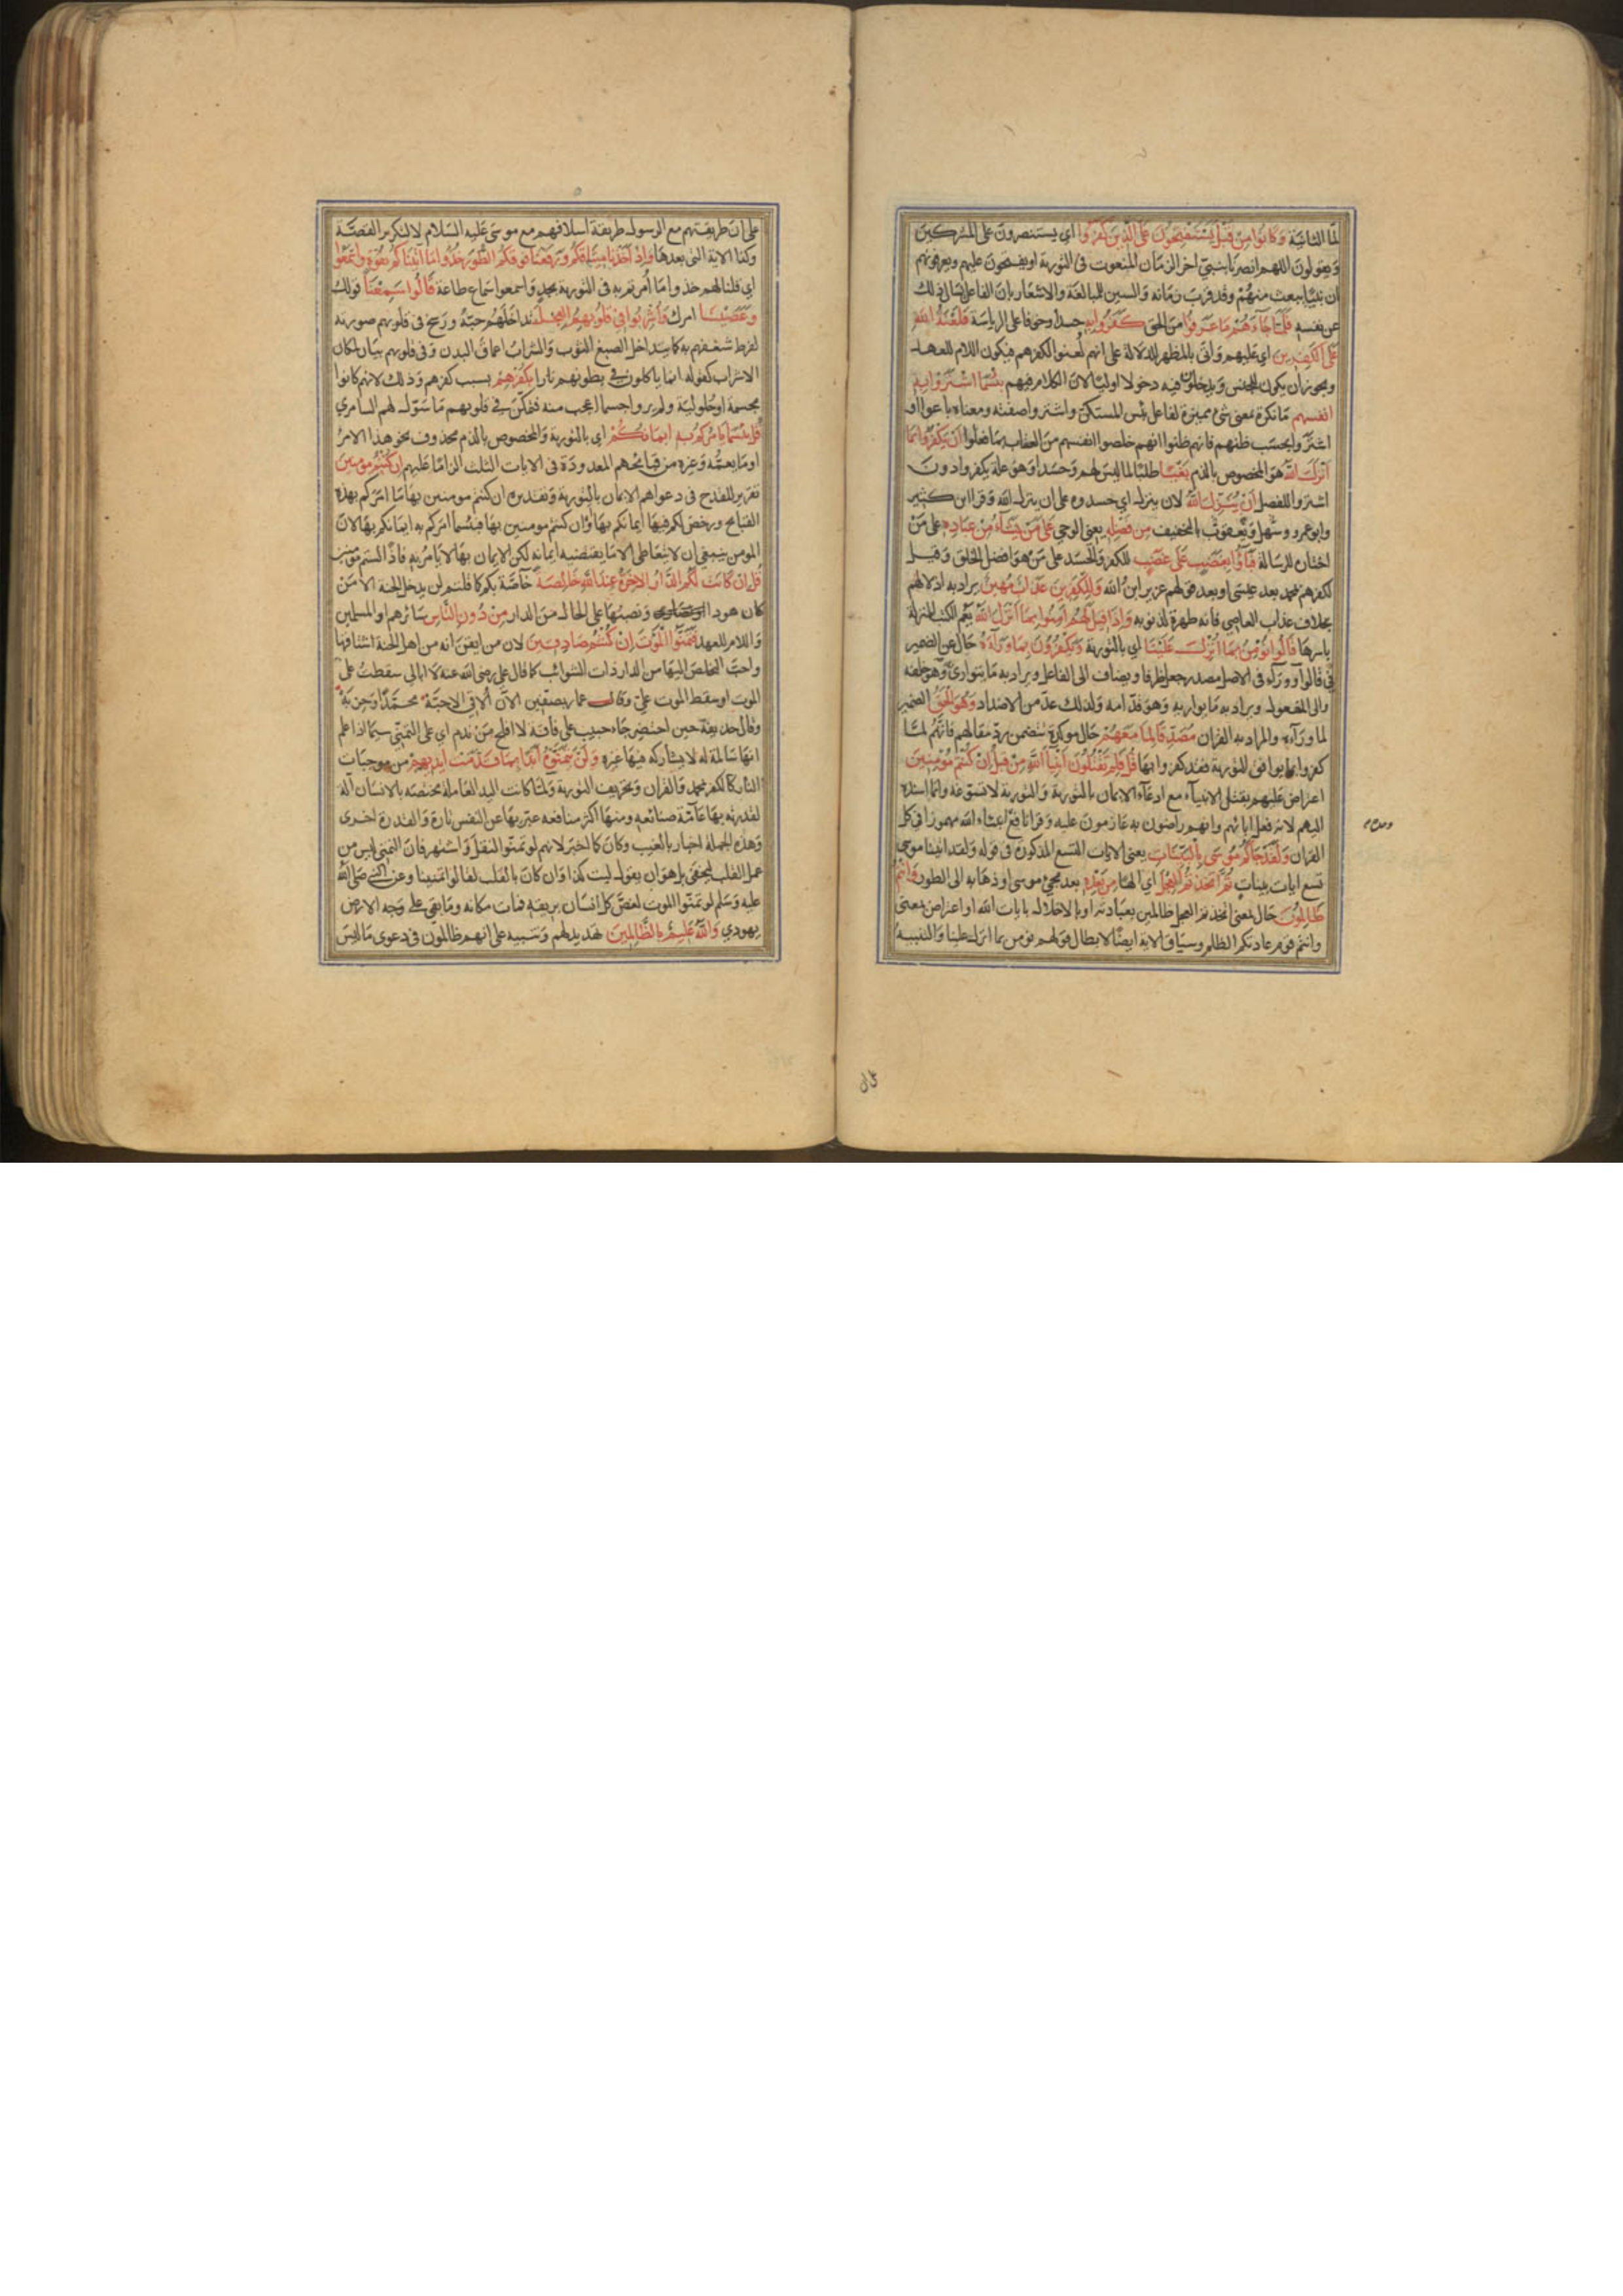 لمّا الثانية وَكَانُوا مِنْ قَبْلُ يَسْتَفْتِحُونَ عَلَى الَّذِينَ كَفَرُوا اي يستنصرون على المشركين
ويقولون اللهم انصرنا بنبيّ اخر الزمان المنعوت فى التورية او يفتحون عليهم ويعرفونهم
ان نبيّا يبعث منهم وقد قرب زمانه والسين للمبالغة والاشعار بان الفاعل يسال ذلك
عن نفسه فَلَمَّا جَآءَهُمْ مَا عَرَفُوا من الحق كَفَرُوا بِهِ حسدا وخوفا على الرياسة فَلَعْنَةُ اللهِ
عَلَى الْكٰفِرِينَ اي عليهم واتى بالمظهر للدلالة على انهم لعنوا لكفرهم فيكون اللام للعهد
ويجوز ان يكون للجنس ويدخلون فيه دخولا اوليا لان الكلام فيهم بِئْسَمَا اشْتَرَوْا بِهِ
انفسهم ما نكرة بمعنى شئ مميزة لفاعل بئس المستكن واشتروا صفته ومعناه باعوا او
اشتروا بحسب ظنهم فانهم ظنوا انهم خلصوا انفسهم من العقاب بما فعلوا اَنْ يَكْفُرُوا بِمَا
اَنْزَلَ اللهُ هو المخصوص بالذم بَغْيًا طلبا لما ليس لهم وحسدا وهو علة يكفروا دون
اشتروا للفصل اَنْ يُنَزِّلَ اللهُ لان ينزل اي حسدوه على ان ينزل الله وقرا ابن كثير
وابو عمرو وسهل ويعقوب بالتخفيف مِن فَضْلِهِ يعنى الوحي عَلَى مَنْ يَشَآءُ مِنْ عِبَادِهِ على من
اختاره للرسالة فَبَآؤُا بِغَضَبٍ عَلَى غَضَبٍ للكفر والحسد على من هو افضل الخلق وقيل
لكفرهم بمحمد بعد عيسى او بعد قولهم عزير ابن الله وَلِلْكٰفِرِينَ عَذَابٌ مُهِينٌ يراد به اذلالهم
بخلاف عذاب العاصي فانه طهرة لذنوبه وَاِذَا قِيلَ لَهُمْ اٰمِنُوا بِمَا اَنْزَلَ اللهُ يعم الكتب المنزلة
باسرها قَالُوا نُؤْمِنُ بِمَا اُنْزِلَ عَلَيْنَا اي بالتورية وَيَكْفُرُونَ بِمَا وَرَآءَهُ حال عن الضمير
فى قالوا ووراء فى الاصل مصدر جعل ظرفا ويضاف الى الفاعل ويراد به ما يتوارى به وهو خلفه
والى المفعول ويراد به ما يواريه وهو قدّامه ولذلك عدّ من الاضداد وَهُوَ الْحَقُّ الضمير
لما وراءه والمراد به القران مُصَدِّقًا لِمَا مَعَهُمْ حال موكدة تتضمن ردّ مقالهم فانهم لما
كفروا بما يوافق التورية فقد كفروا بها قُلْ فَلِمَ تَقْتُلُونَ اَنْبِيَآءَ اللهِ مِنْ قَبْلُ اِنْ كُنْتُمْ مُؤْمِنِينَ
اعتراض عليهم بقتل الانبياء مع ادعاء الايمان بالتورية والتورية لا تسوّغه وانما اسنده
اليهم لانه فعل ابائهم وانهم راضون به عازمون عليه وقرا نافع انبئاء الله مهموزا فى كل
القران وَلَقَدْ جَآءَكُمْ مُوسَى بِالْبَيِّنَاتِ يعنى الايات التسع المذكورة فى قوله ولقد اتينا موسى
تسع ايات بينات ثُمَّ اتَّخَذْتُمُ الْعِجْلَ اي الها مِنْ بَعْدِهِ بعد مجئ موسى او ذهابه الى الطور وَاَنْتُمْ
ظَالِمُونَ حال بمعنى اتخذتم العجل ظالمين بعبادته او بالاخلال بايات الله او اعتراض بمعنى
وانتم قوم عادتكم الظلم وسياق الاية ايضا لابطال قولهم نؤمن بما انزل علينا والتنبيه
على ان طريقتهم مع الرسول طريقة اسلافهم مع موسى عليه السلام لا لتكرير القصّة
وكذا الاية التى بعدها وَاِذْ اَخَذْنَا مِيثَاقَكُمْ وَرَفَعْنَا فَوْقَكُمُ الطُّورَ خُذُوا مَا آتَيْنَاكُمْ بِقُوَّةٍ وَاسْمَعُوا
اي قلنا لهم خذوا ما أمرتم به فى التورية بجد واسمعوا سماع طاعة قَالُوا سَمِعْنَا قولك
وَعَصَيْنَا امرك وَاُشْرِبُوا فِي قُلُوبِهِمُ الْعِجْلَ تداخلهم حبّه ورسخ فى قلوبهم صورته
لفرط شغفهم به كما يتداخل الصبغ الثوب والشراب اعماق البدن وفى قلوبهم بيان لمكان
الاشراب كقوله انما ياكلون فى بطونهم نارا بِكُفْرِهِمْ بسبب كفرهم وذلك لانهم كانوا
مجسمة او حلولية ولم يروا جسما اعجب منه فتمكّن فى قلوبهم ما سوّل لهم السامري
قُلْ بِئْسَمَا يَاْمُرُكُمْ بِهِ اِيمَانُكُمْ اي بالتورية والمخصوص بالذم محذوف نحو هذا الامر
او ما يعمّه وغيره من قبائحهم المعدودة فى الايات الثلث الزاما عليهم اِنْ كُنْتُمْ مُؤْمِنِينَ
تقرير للقدح فى دعواهم الايمان بالتورية وتقديره ان كنتم مومنين بها ما امركم بهذه
القبائح ورخص لكم فيها ايمانكم بها او ان كنتم مومنين بها فبئسما امركم به ايمانكم بها لان
المومن ينبغى ان لا يتعاطى الا ما يقتضيه ايمانه لكن الايمان بها لا يامر به فاذا لستم مومنين
قُلْ اِنْ كَانَتْ لَكُمُ الدَّارُ الْاٰخِرَةُ عِنْدَ اللهِ خَالِصَةً خاصّة بكم كما قلتم لن يدخل الجنة الا من
كان هودا ونصبها على الحال من الدار مِنْ دُونِ النَّاسِ سائرهم او المسلمين
واللام للعهد فَتَمَنَّوُا الْمَوْتَ اِنْ كُنْتُمْ صَادِقِينَ لان من ايقن انه من اهل الجنة اشتاقها
واحبّ التخلص اليها من الدار ذات الشوائب كما قال على رضى الله عنه لا ابالى سقطت على
الموت او سقط الموت علىّ وقال عمار بصفّين الان الاقى الاحبّة محمدا وحزبه
وقال حذيفة حين احتضر جاء حبيب على فاقة لا افلح من ندم اي على التمنّى سيما اذا علم
انها سالمة له لا يشاركه فيها غيره وَلَنْ يَتَمَنَّوْهُ اَبَدًا بِمَا قَدَّمَتْ اَيْدِيهِمْ من موجبات
النار كالكفر بمحمد والقران وتحريف التورية ولما كانت اليد العاملة مختصّة بالانسان آلة
لقدرته بها عامّة صنائعه ومنها اكثر منافعه عبّر بها عن النفس تارة والقدرة اخرى
وهذه الجملة اخبار بالغيب وكان كما اخبر لانهم لو تمنّوا لنقل واشتهر فان التمنى ليس من
عمل القلب ليخفى بل هو ان يقول ليت كذا وان كان بالقلب لقالوا تمنينا وعن النبى صلى الله
عليه وسلم لو تمنّوا الموت لغصّ كل انسان بريقه فمات مكانه وما بقى على وجه الارض
يهودي وَاللهُ عَلِيمٌ بِالظَّالِمِينَ تهديد لهم وتنبيه على انهم ظالمون فى دعوى ما ليس